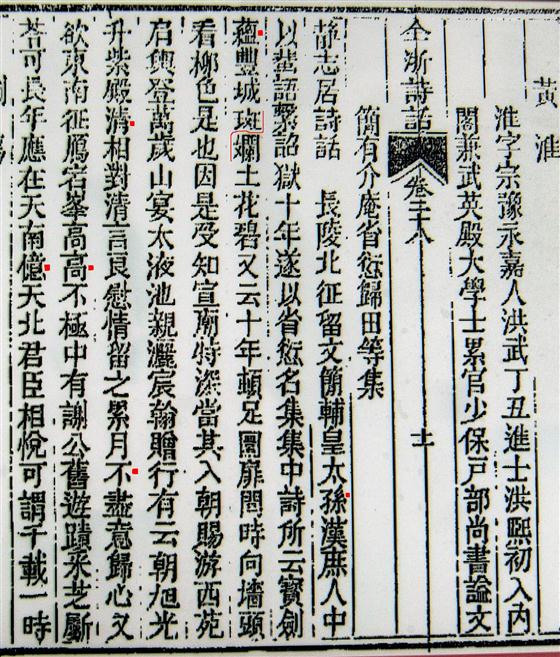 黃淮
淮字宗豫永嘉人洪武丁丑進士洪熙初入內
閣兼武英殿大學士累官少保戶部尚書謚文
簡有介庵省愆歸田等集
全浙詩話 卷二十八 十
静志居詩話 長陵北征留文簡輔皇太孫漢庶人中
以蜚語繫詔獄十年遂以省愆名集集中詩所云寶劍
蘊豐城斑斕土花碧又云十年頓足圜扉間時向墻頭
看柳色是也因是受知宣廟特深當其入朝賜游西苑
肩輿登萬歲山宴太液池親灑宸翰贈行有云朝旭光
升紫殿清相對清言良慰情留之累月不盡意歸心又
欲東南征鴈宕峯高高不極中有謝公舊遊蹟采芝斸
苓可長年應在天南億天北君臣相悅可謂千載一時